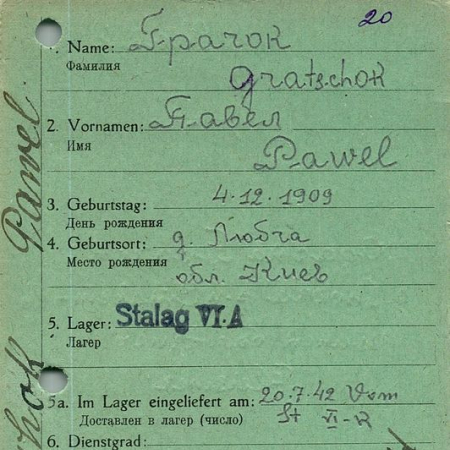 20
1. Name: Грачок
Фамилия
Gratschok
2. Vornamen: Павел
Имя
Pawel
3. Geburtstag: 4.12.1909
День рождения
4. Geburtsort: д. Любча
Место рождения
обл. Киев
5. Lager: Stalag VI A
Лагер
5a. Im Lager eingeliefert am: 20.7.42 Vom
Доставлен в лагер (число) St VI-K
6. Dienstgrad:
Pawel